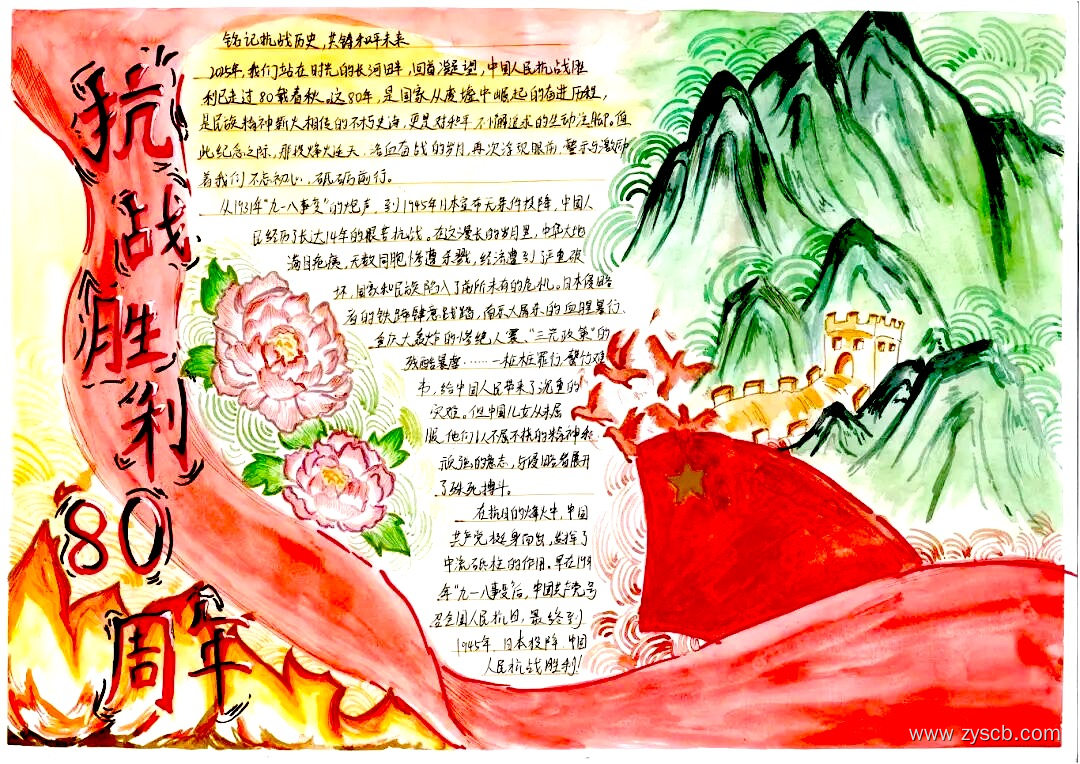 抗战胜利
80
周年
铭记抗战历史,共铸和平未来
2025年,我们站在时光的长河畔,回首凝望,中国人民抗战胜
利已走过80载春秋。这80年,是国家从废墟中崛起的奋进历程,
是民族精神薪火相传的不朽史诗,更是对和平不懈追求的生动注脚。值
此纪念之际,那段烽火连天、浴血奋战的岁月,再次浮现眼前,警示与激励
着我们不忘初心,砥砺前行。
从1931年“九一八事变”的炮声,到1945年日本宣布无条件投降,中国人
民经历了长达14年的艰苦抗战。在这漫长的岁月里,中华大地
满目疮痍,无数同胞惨遭杀戮,经济遭到严重破
坏,国家和民族陷入了前所未有的危机。日本侵略
者的铁蹄肆意践踏,南京大屠杀的血腥暴行、
重庆大轰炸的惨绝人寰、“三光政策”的
残酷暴虐……一桩桩罪行,罄竹难
书,给中国人民带来了沉重的
灾难。但中国儿女从未屈
服,他们以不屈不挠的精神和
顽强的意志,与侵略者展开
了殊死搏斗。
在抗日的烽火中,中国
共产党挺身而出,发挥了
中流砥柱的作用。早在1931
年“九一八事变”后,中国共产党号
召全国人民抗日,最终到
1945年 日本投降 中国
人民抗战胜利!
www.zyscb.com